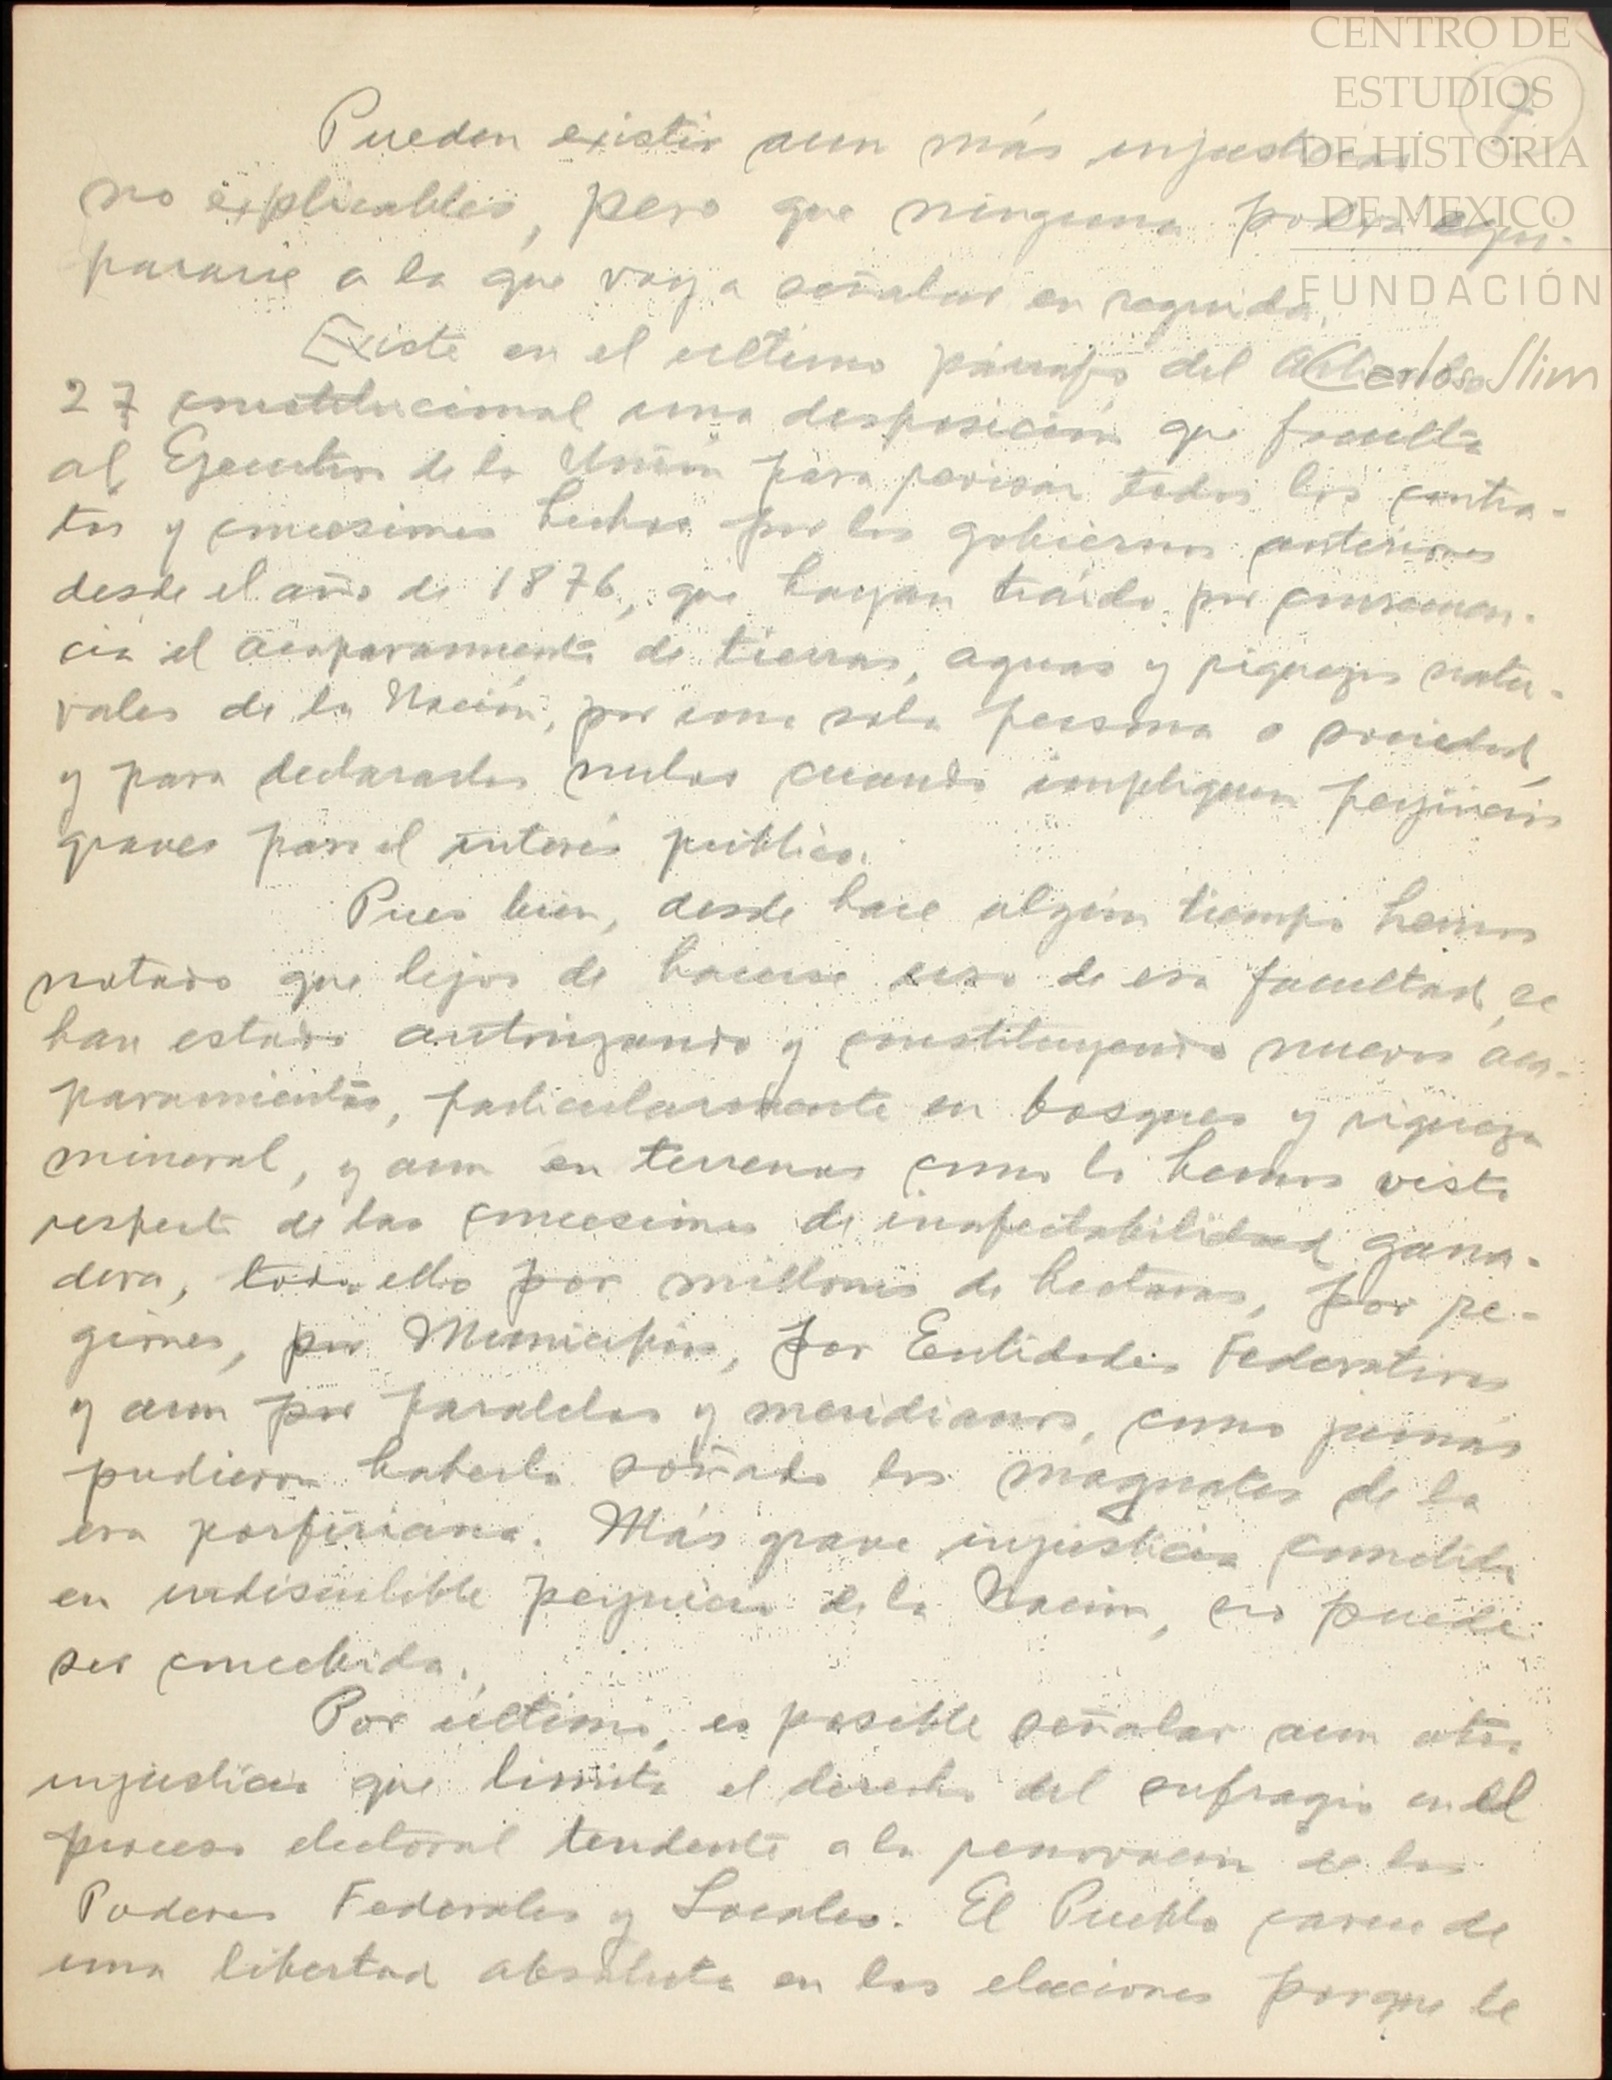 CENTRO DE
ESTUDIOS
DE HISTORIA
DE MEXICO
FUNDACIÓN
Carlos Slim
7
Pueden existir aun más injusticias
no explicables, pero que ninguna podrá equi-
pararse a la que voy a señalar en seguida.
Existe en el ultimo párrafo del Artículo
27 constitucional una desposición que faculta
al Ejecutivo de la Unión para revisar todos los contra-
tos y concesiones hechos por los gobiernos anteriores
desde el año de 1876, que hayan traído por consecuen-
cia el acaparamiento de tierras, aguas y riquezas natu-
rales de la Nación, por una sola persona o sociedad,
y para declararlos nulos cuando impliquen perjuicios
graves para el interés público.
Pues bien, desde hace algún tiempo hemos
notado que lejos de hacerse uso de esa facultad, se
han estado autorizando y constituyendo nuevos aca-
paramientos, particularmente en bosques y riqueza
mineral, y aun en terrenos como lo hemos visto
respecto de las concesiones de inafectabilidad gana-
dera, todo ello por millones de hectáreas, por re-
giones, por Municipios, por Entidades Federativas
y aun por paralelos y meridianos, como jamás
pudieron haberlo soñado los magnates de la
era porfiriana. Más grave injusticia cometida
en indiscutible perjuicio de la Nación, no puede
ser concebida.
Por último, es posible señalar aun otra
injusticia que limita el derecho del sufragio en el
proceso electoral tendente a la renovación de los
Poderes Federales y Locales. El Pueblo carece de
una libertad absoluta en las elecciones porque le